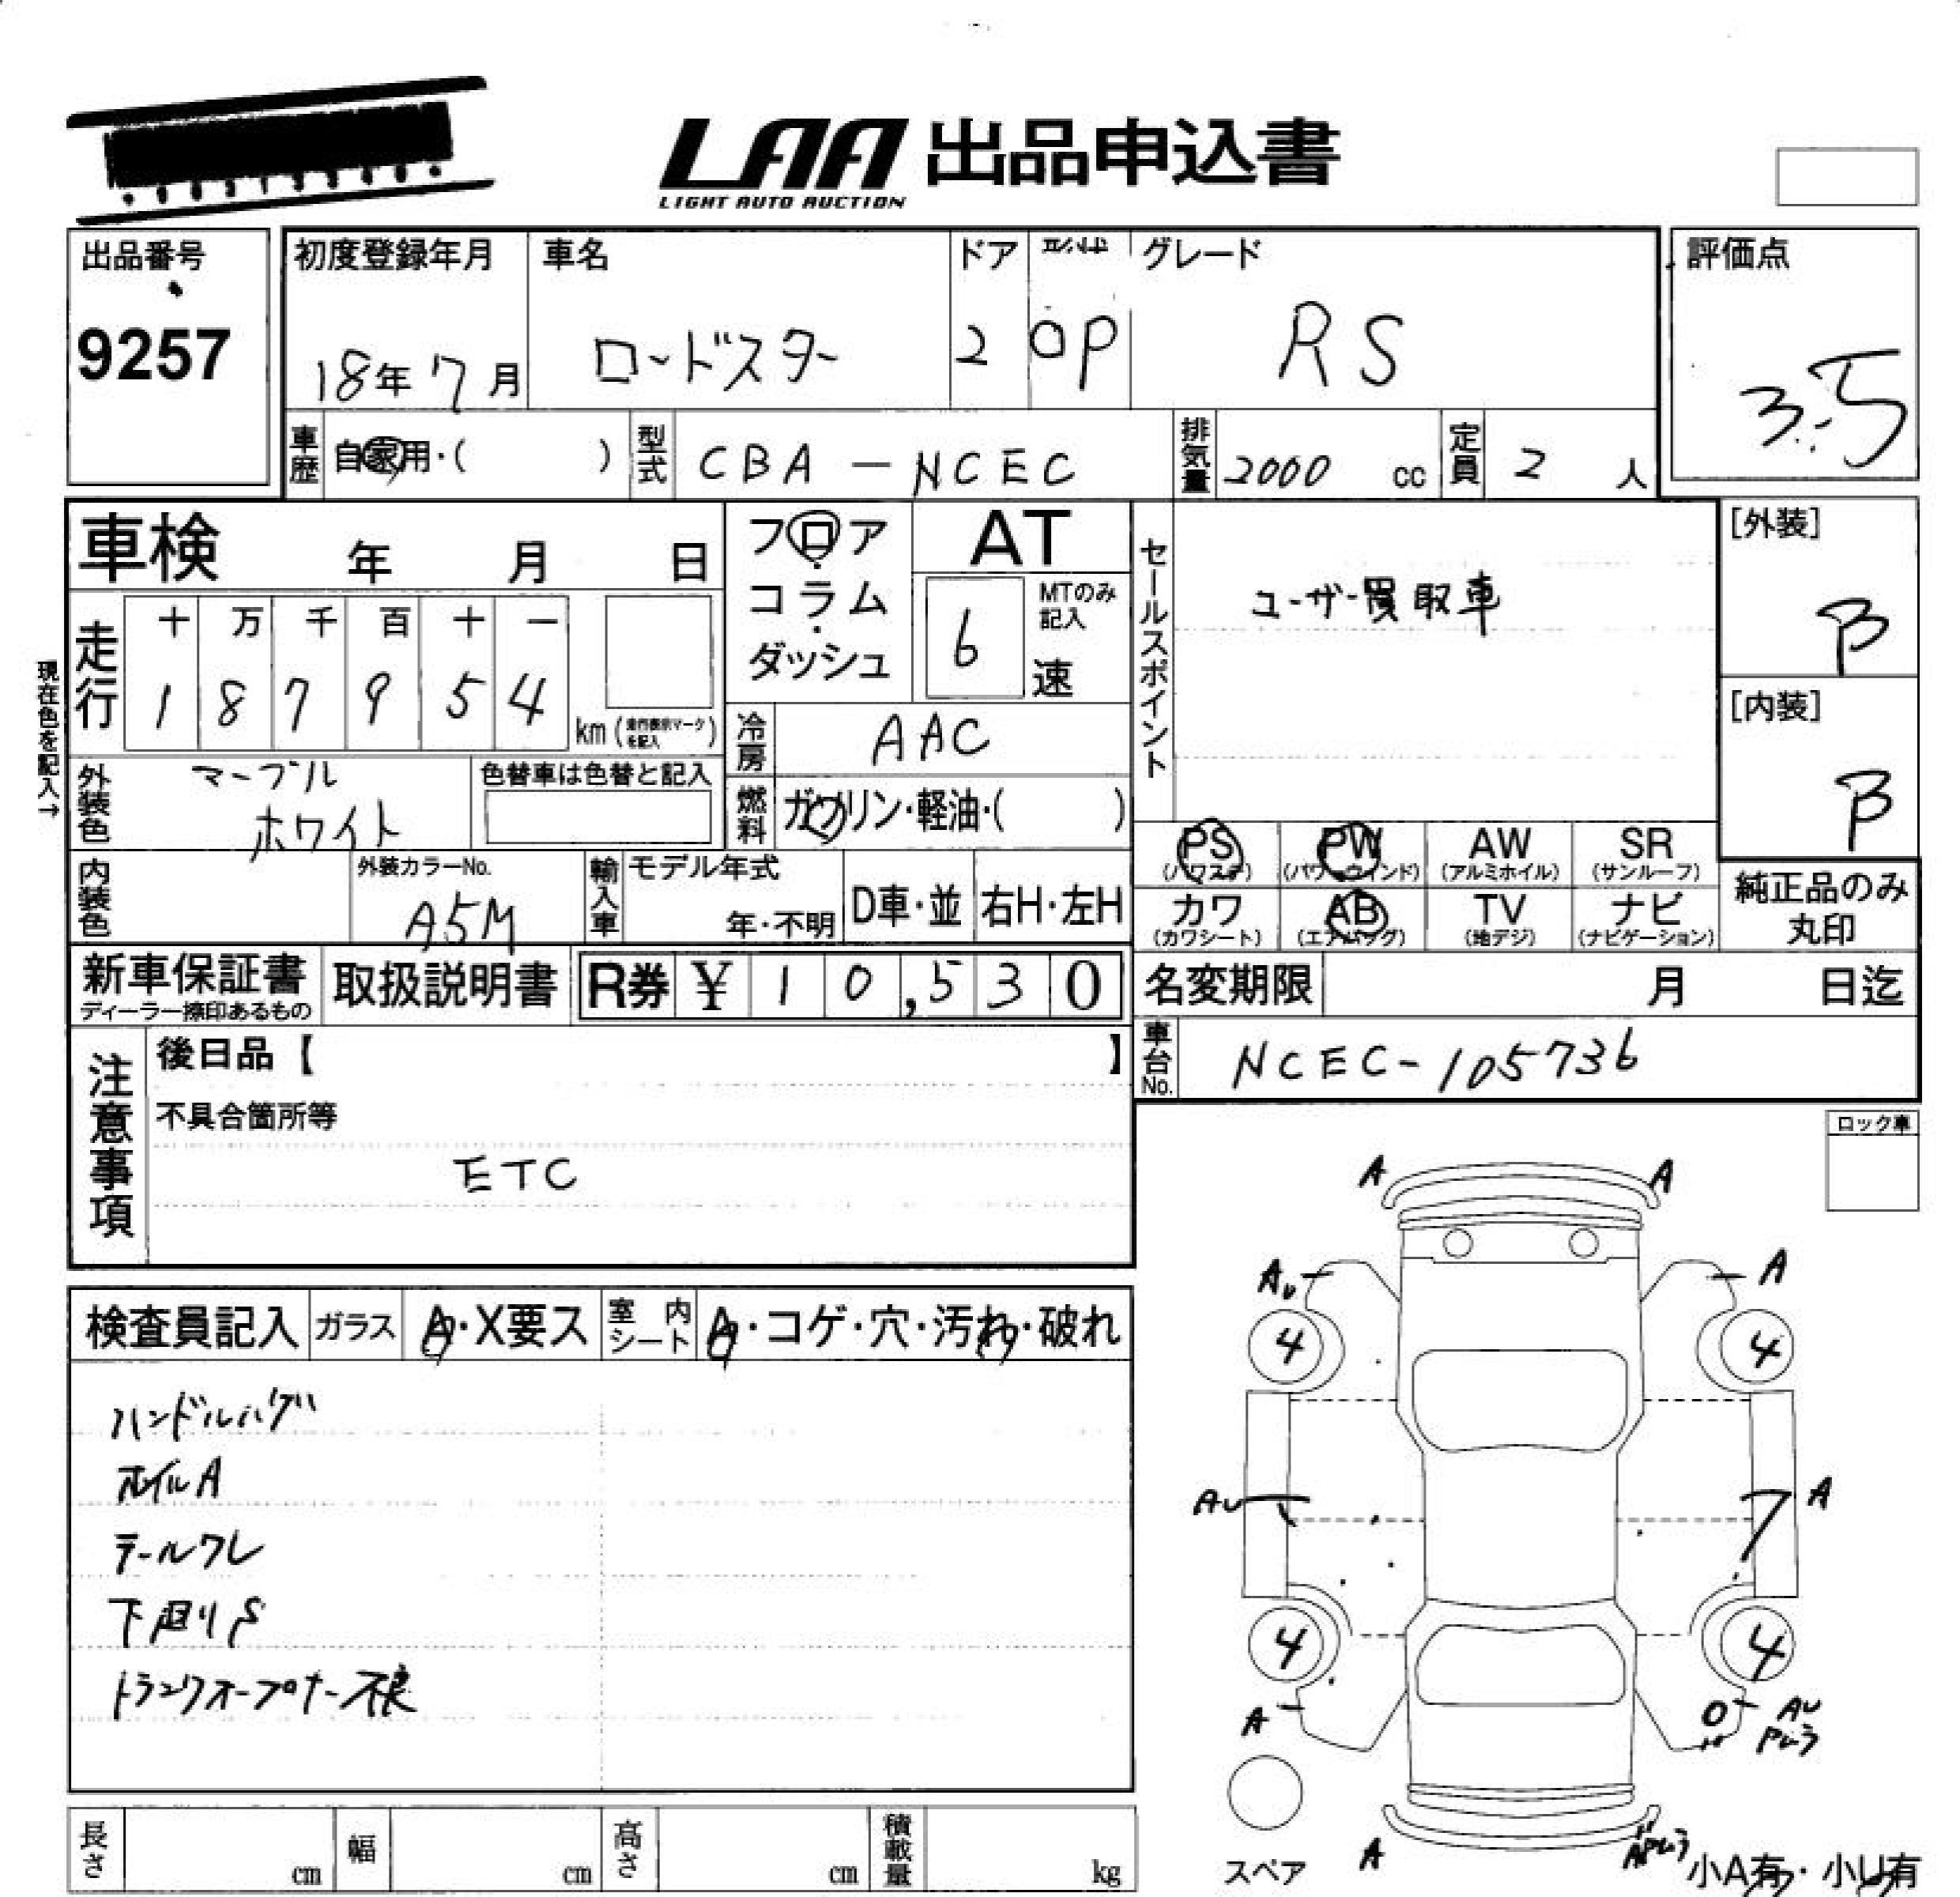 LAA 出品申込書
LIGHT AUTO AUCTION
出品番号
9257
初度登録年月
18年7月
車名
ロードスター
ドア
2
形状
OP
グレード
RS
評価点
3.5
車歴
自家用・( )
型式
CBA-NCEC
排気量
2000 cc
定員
2 人
車検 年 月 日
フロア
コラム
ダッシュ
AT
MTのみ
記入
6 速
セールスポイント
ユーザー買取車
[外装]
B
[内装]
B
現在色を記入→
走行
十 万 千 百 十 一
1 8 7 9 5 4
km (走行表示マークを記入)
冷房
AAC
外装色
マーブル
ホワイト
色替車は色替と記入
燃料
ガソリン・軽油・( )
PS
(パワステ)
PW
(パワーウインド)
AW
(アルミホイル)
SR
(サンルーフ)
カワ
(カワシート)
AB
(エアバッグ)
TV
(地デジ)
ナビ
(ナビゲーション)
純正品のみ
丸印
内装色
外装カラーNo.
A5M
輸入車
モデル年式
年・不明
D車・並
右H・左H
新車保証書
ディーラー捺印あるもの
取扱説明書
R券 ¥ 10,530
名変期限 月 日迄
車台No.
NCEC-105736
注意事項
後日品【 】
不具合箇所等
ETC
ロック車
検査員記入
ガラス
A・X要ス
室内
シート
A・コゲ・穴・汚れ・破れ
ハンドルハゲ
ホイルA
テールワレ
下回りS
トランクオープナー不良
A A
AU A
4 4
AU A
4 4
A AU
Pムラ
スペア
A
APムラ
小A有・小U有
長さ cm
幅 cm
高さ cm
積載量 kg